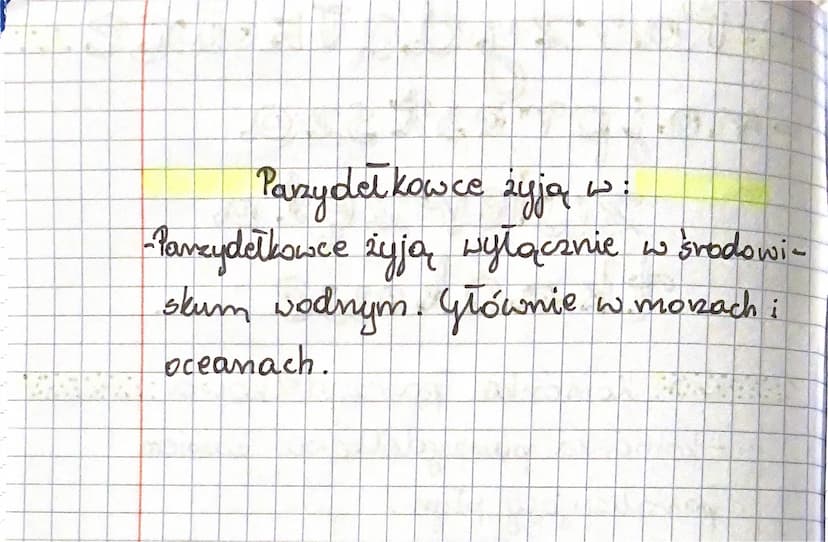 Parzydełkowce żyją w:
-Parzydełkowce żyją wyłącznie w środowi-
skum wodnym. Głównie w morzach i
oceanach.